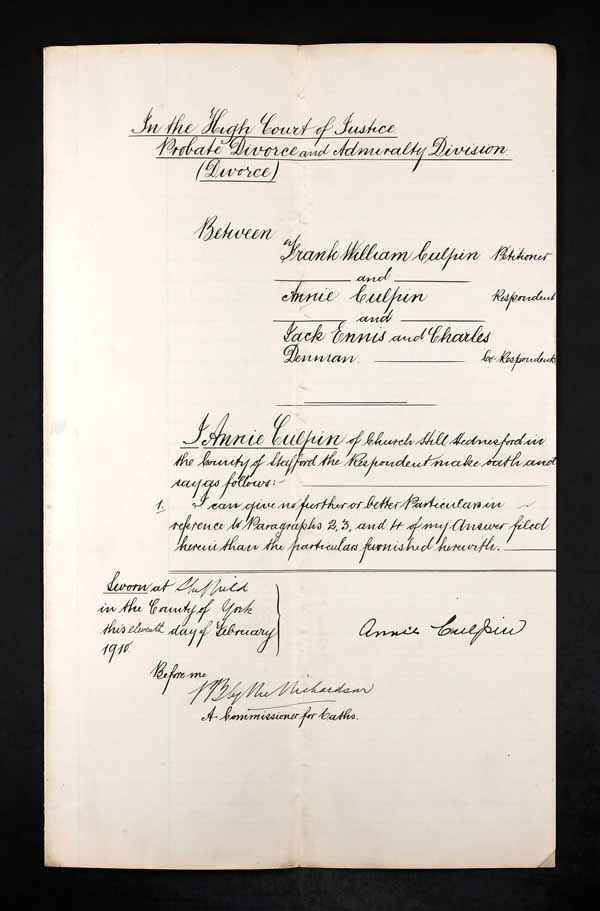 In the High Court of Justice
Probate Divorce and Admiralty Division
(Divorce)
Between
Frank William Culpin Petitioner
and
Annie Culpin Respondent
and
Jack Ennis and Charles
Denman. Co-Respondents
I Annie Culpin of Church Hill Hednesford in
the County of Stafford the Respondent make oath and
say as follows:-
1. I can give no further or better Particulars in
reference to Paragraphs 2, 3, and 4 of my Answer filed
herein than the particulars furnished herewith.
Sworn at Sheffield
in the County of York
this eleventh day of February
1910.
Annie Culpin
Before me
Richardson
A Commissioner for Oaths.